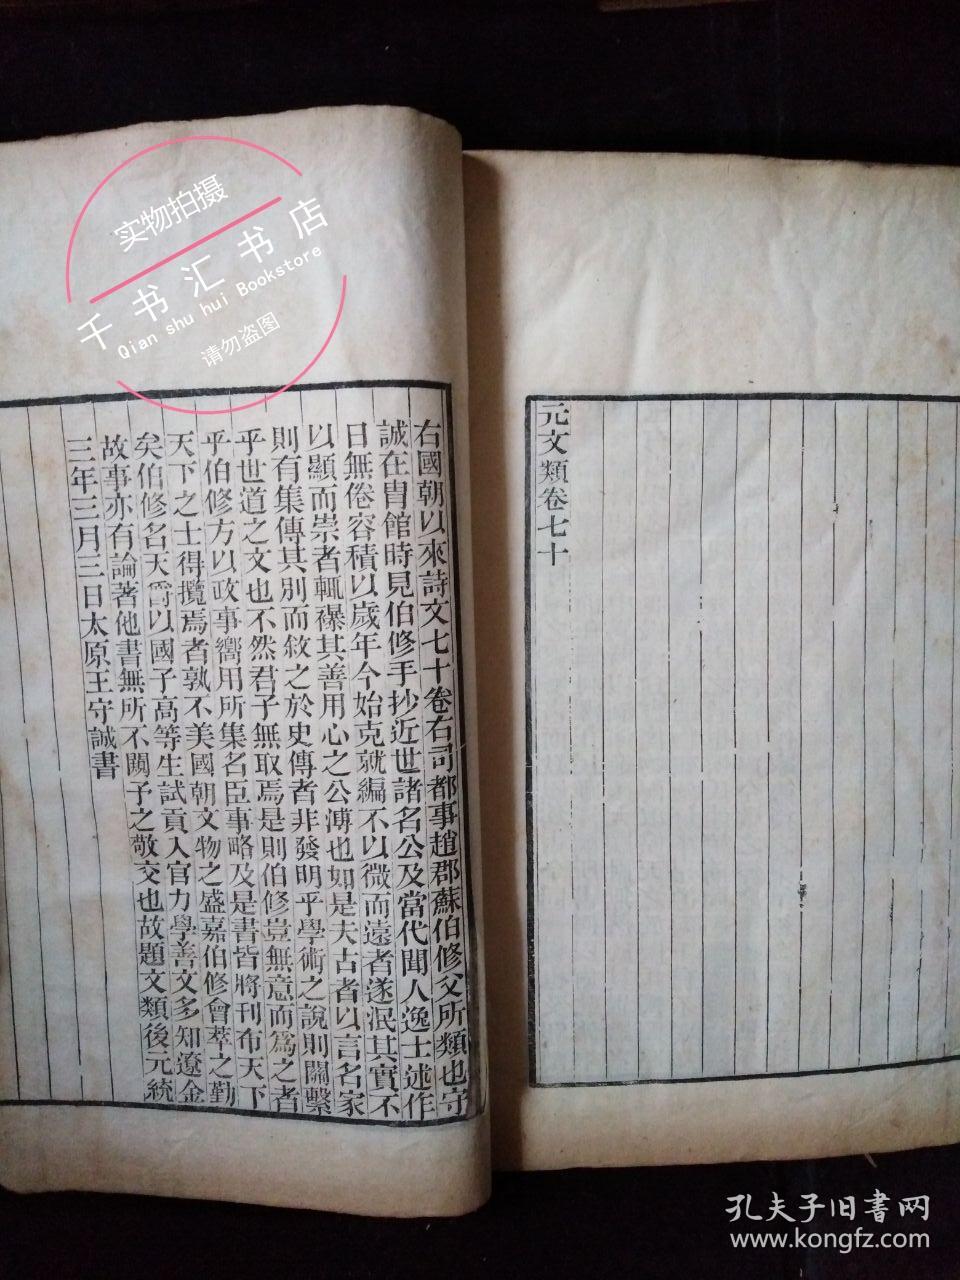 元文類卷七十
右國朝以來詩文七十卷右司都事趙郡蘇伯修父所類也守
誠在胄館時見伯修手抄近世諸名公及當代聞人逸士述作
日無倦容積以歲年今始克就編不以微而遠者遂泯其實不
以顯而崇者輒襮其善用心之公溥也如是夫古者以言名家
則有集傳其別而敘之於史傳者非發明乎學術之說則關繫
乎世道之文也不然君子無取焉是則伯修豈無意而為之者
乎伯修方以政事嚮用所集名臣事略及是書皆將刊布天下
天下之士得攬焉者孰不美國朝文物之盛嘉伯修會萃之勤
矣伯修名天爵以國子高等生試貢入官力學善文多知遼金
故事亦有論著他書無所不關予之敬交也故題文類後元統
三年三月三日太原王守誠書
实物拍摄
千书汇书店
Qian shu hui Bookstore
请勿盗图
孔夫子旧书网
www.kongfz.com